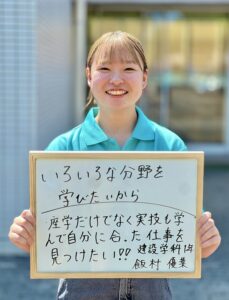 いろいろな分野を
学びたいから
座学だけでなく実技も学
んで自分に合った仕事を
見つけたい!! 建設学科1年
飯村 優葉